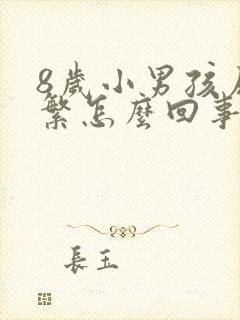 8歲小男孩
繁怎麼回事
長玉